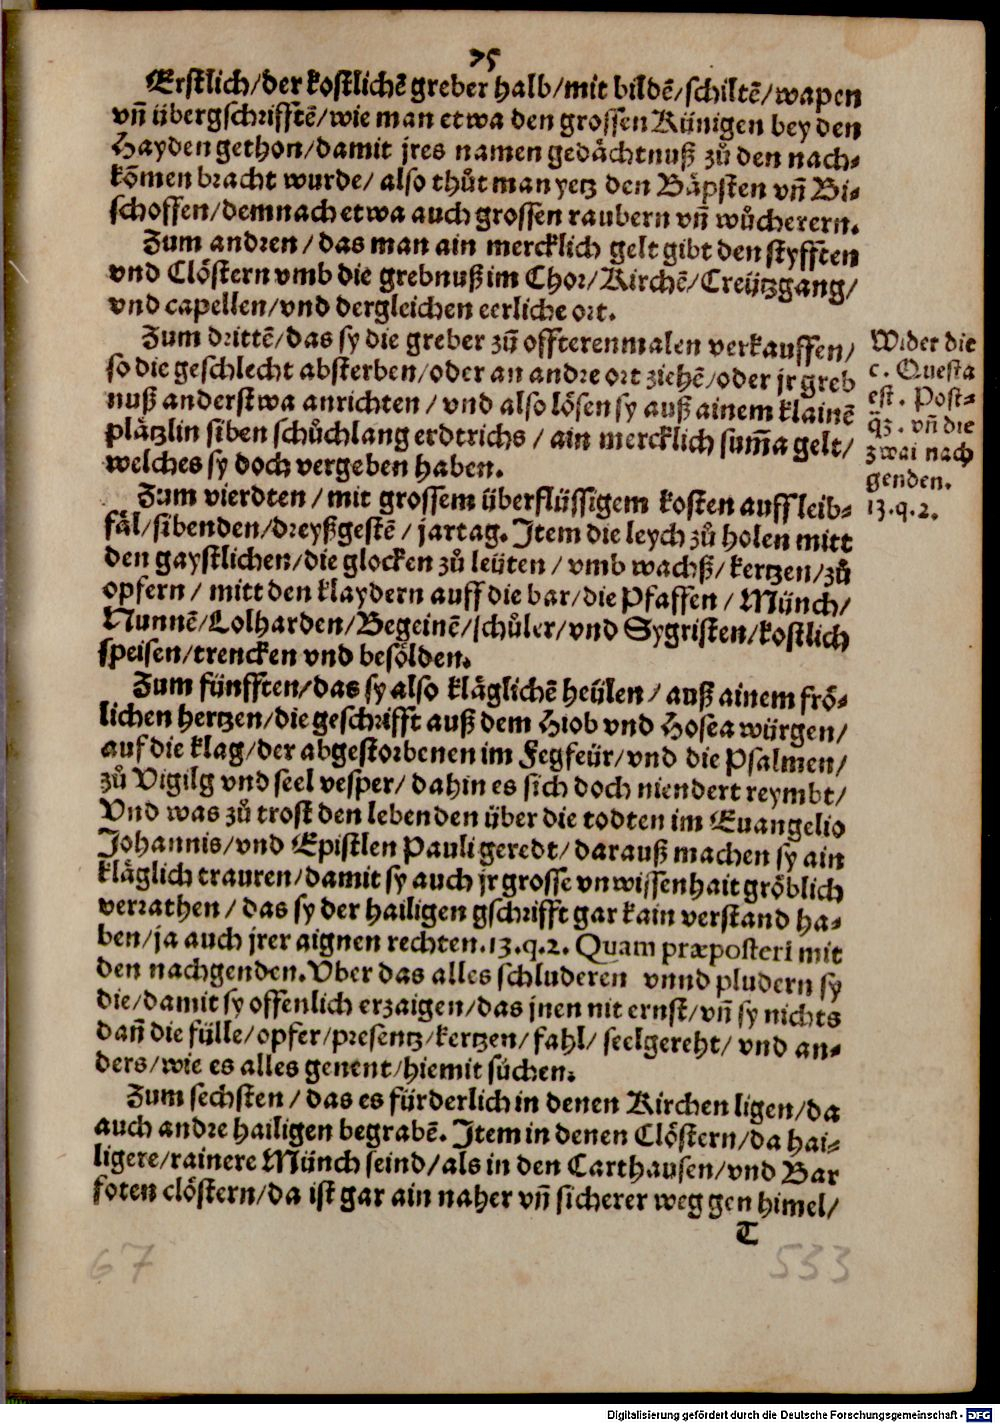 75
Erstlich/der kostlichē greber halb/mit bildē/schiltē/wapen
vn̄ übergschrifftē/wie man etwa den grossen Künigen bey den
Hayden gethon/damit jres namen gedächtnuß zů den nach-
kōmen bracht wurde/ also thůt man yetz den Bäpsten vn̄ Bi-
schoffen/demnach etwa auch grossen raubern vn̄ wůcherern.
Zum andren/das man ain mercklich gelt gibt den styfften
vnd Clöstern vmb die grebnuß im Chor/Kirchē/Creützgang/
vnd capellen/vnd dergleichen eerliche ort.
Zum drittē/das sy die greber zū offterenmalen verkauffen/
so die geschlecht absterben/oder an andre ort ziehē/oder jr greb
nuß anderstwa anrichten/ vnd also lösen sy auß ainem klainē
plätzlin siben schůchlang erdtrichs/ ain mercklich sum̄a gelt/
welches sy doch vergeben haben.
Wider die
c. Questa
est. Post-
q̄z. vn̄ die
zwai nach
genden.
13.q.2.
Zum vierdten/ mit grossem überflüssigem kosten auff leib-
fäl/sibenden/dreyßgestē/ jartag. Item die leych zů holen mitt
den gaystlichen/die glocken zů leüten/ vmb wachß/kertzen/zů
opfern/ mitt den klaydern auff die bar/die Pfaffen/ Münch/
Nunnē/Lolharden/Begeinē/schůler/vnd Sygristen/kostlich
speisen/trencken vnd besölden.
Zum fünfften/das sy also kläglichē heülen/ auß ainem frö-
lichen hertzen/die geschrifft auß dem Hiob vnd Hosea würgen/
auf die klag/der abgestorbenen im Fegfeür/vnd die Psalmen/
zů Vigilg vnd seel vesper/ dahin es sich doch niendert reymbt/
Vnd was zů trost den lebenden über die todten im Euangelio
Johannis/vnd Epistlen Pauli geredt/darauß machen sy ain
kläglich trauren/damit sy auch jr grosse vnwissenhait gröblich
verrathen/ das sy der hailigen gschrifft gar kain verstand ha-
ben/ja auch jrer aignen rechten.13.q.2. Quam præposteri mit
den nachgenden. Vber das alles schluderen vnnd pludern sy
die/damit sy offenlich erzaigen/das jnen nit ernst/vn̄ sy nichts
dan̄ die fülle/opfer/presentz/kertzen/fahl/ seelgereht/ vnd an-
ders/wie es alles genent/hiemit süchen.
Zum sechsten/ das es fürderlich in denen Kirchen ligen/da
auch andre hailigen begrabē. Item in denen Clöstern/da hai-
ligere/rainere Münch seind/als in den Carthausen/vnd Bar
foten clöstern/da ist gar ain naher vn̄ sicherer weg gen himel/
T
67
533
Digitalisierung gefördert durch die Deutsche Forschungsgemeinschaft - DFG